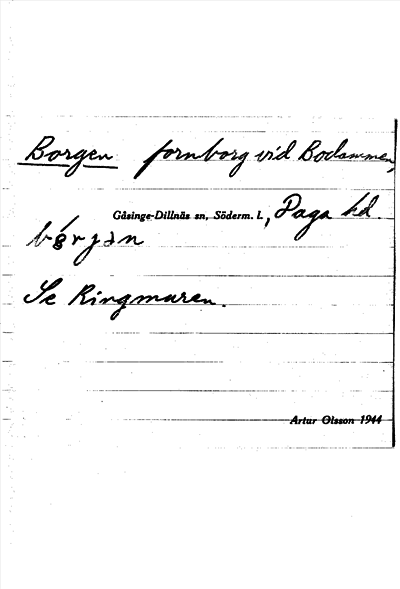 Borgen fornborg vid Bodammen,
Gåsinge-Dillnäs sn, Söderm. l., Daga hd.
Se Ringmuren.
Artur Olsson 1944